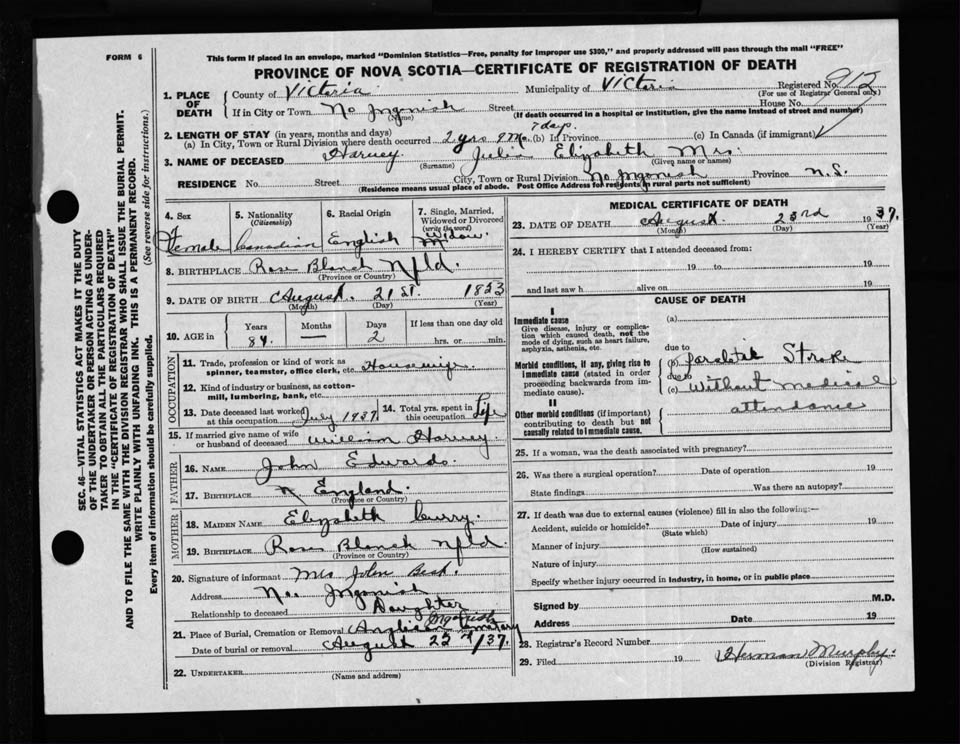 FORM 6
This form if placed in an envelope, marked "Dominion Statistics—Free, penalty for improper use $300," and properly addressed will pass through the mail "FREE"
PROVINCE OF NOVA SCOTIA—CERTIFICATE OF REGISTRATION OF DEATH
1. PLACE OF DEATH County of Victoria Municipality of Victoria Registered No. 912
(For use of Registrar General only)
If in City or Town No Ingonish Street House No.
(Name) (If death occurred in a hospital or institution, give the name instead of street and number)
2. LENGTH OF STAY (in years, months and days) 7 days.
(a) In City, Town or Rural Division where death occurred 2 yrs 9 Mo. (b) In Province (c) In Canada (if immigrant)
3. NAME OF DECEASED Harvey Julia Elizabeth Mrs.
(Surname) (Given name or names)
RESIDENCE No. Street City, Town or Rural Division No Ingonish Province N.S.
(Residence means usual place of abode. Post Office Address for residents in rural parts not sufficient)
4. Sex 5. Nationality (Citizenship) 6. Racial Origin 7. Single, Married, Widowed or Divorced (write the word)
Female Canadian English Widow
8. BIRTHPLACE Rose Blanch Nfld.
(Province or Country)
9. DATE OF BIRTH August. 21st. 1853
(Month) (Day) (Year)
10. AGE in Years Months Days If less than one day old
84. — 2 hrs. or min.
OCCUPATION
11. Trade, profession or kind of work as spinner, teamster, office clerk, etc. Housewife
12. Kind of industry or business, as cotton-mill, lumbering, bank, etc.
13. Date deceased last worked at this occupation July 1937 14. Total yrs. spent in this occupation Life
15. If married give name of wife or husband of deceased William Harvey.
FATHER
16. NAME John Edwards.
17. BIRTHPLACE England.
(Province or Country)
MOTHER
18. MAIDEN NAME Elizabeth Curry.
19. BIRTHPLACE Rose Blanch Nfld
(Province or Country)
20. Signature of informant Mrs John
Address No. Ingonish
Relationship to deceased Daughter
21. Place of Burial, Cremation or Removal Anglican Ingonish Cemetery
Date of burial or removal August /37.
22. UNDERTAKER
(Name and address)
MEDICAL CERTIFICATE OF DEATH
23. DATE OF DEATH August. 23rd 1937.
(Month) (Day) (Year)
24. I HEREBY CERTIFY that I attended deceased from:
19 to 19
and last saw h alive on 19
CAUSE OF DEATH
I
Immediate cause (a)
Give disease, injury or complication which caused death, not the mode of dying, such as heart failure, asphyxia, asthenia, etc.
due to
Morbid conditions, if any, giving rise to immediate cause (stated in order proceeding backwards from immediate cause). (b) Paralitik Stroke
due to
(c) Without Medical
attendance
II
Other morbid conditions (if important) contributing to death but not causally related to immediate cause.
25. If a woman, was the death associated with pregnancy?
26. Was there a surgical operation? Date of operation 19
State findings Was there an autopsy?
27. If death was due to external causes (violence) fill in also the following:—
Accident, suicide or homicide? Date of injury 19
(State which)
Manner of injury
(How sustained)
Nature of injury
Specify whether injury occurred in industry, in home, or in public place
Signed by M.D.
Address Date 19
28. Registrar's Record Number
29. Filed 19 Herman Murphy.
(Division Registrar)
SEC. 46—VITAL STATISTICS ACT MAKES IT THE DUTY
OF THE UNDERTAKER OR PERSON ACTING AS UNDER-
TAKER TO OBTAIN ALL THE PARTICULARS REQUIRED
IN THE "CERTIFICATE OF REGISTRATION OF DEATH"
AND TO FILE THE SAME WITH THE DIVISION REGISTRAR WHO SHALL ISSUE THE BURIAL PERMIT.
WRITE PLAINLY WITH UNFADING INK. THIS IS A PERMANENT RECORD.
Every item of information should be carefully supplied. (See reverse side for instructions.)